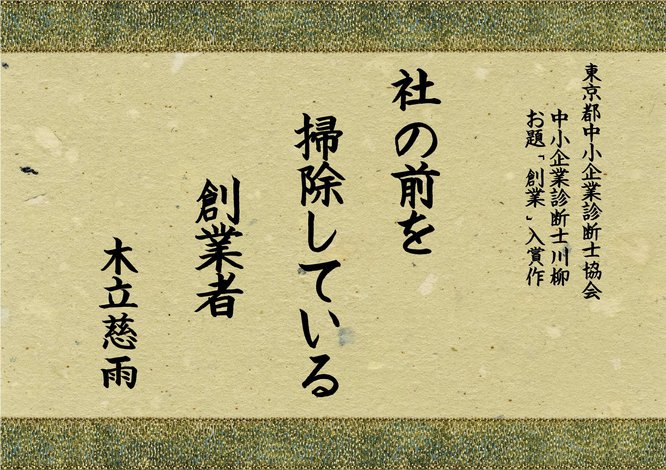 東京都中小企業診断士協会
中小企業診断士川柳
お題「創業」入賞作
社の前を
掃除している
創業者
木立慈雨